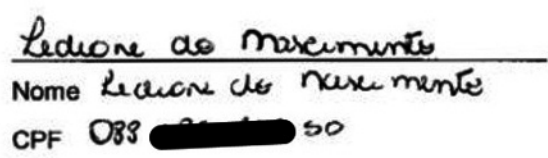 Ledione do Nascimento
Nome Ledione do Nascimento
CPF 033 50